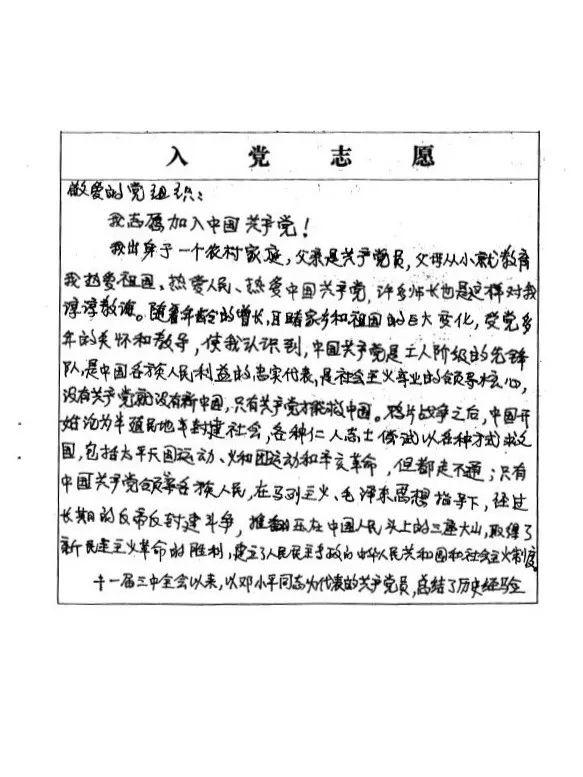 入党志愿
敬爱的党组织：
我志愿加入中国共产党！
我出身于一个农村家庭，父亲是共产党员，父母从小就教育
我热爱祖国、热爱人民、热爱中国共产党，许多师长也是这样对我
谆谆教诲。随着年龄的增长，目睹家乡和祖国的巨大变化，受党多
年的关怀和教导，使我认识到，中国共产党是工人阶级的先锋
队，是中国各族人民利益的忠实代表，是社会主义事业的领导核心，
没有共产党就没有新中国，只有共产党才能救中国。鸦片战争之后，中国开
始沦为半殖民地半封建社会，各种仁人志士 试以各种方式救
国，包括太平天国运动、义和团运动和辛亥革命，但都走不通；只有
中国共产党领导各族人民，在马列主义、毛泽东思想指导下，经过
长期的反帝反封建斗争，推翻压在中国人民头上的三座大山，取得了
新民主主义革命的胜利，建立了人民民主专政的中华人民共和国和社会主义制度。
十一届三中全会以来，以邓小平同志为代表的共产党员，总结了历史经验